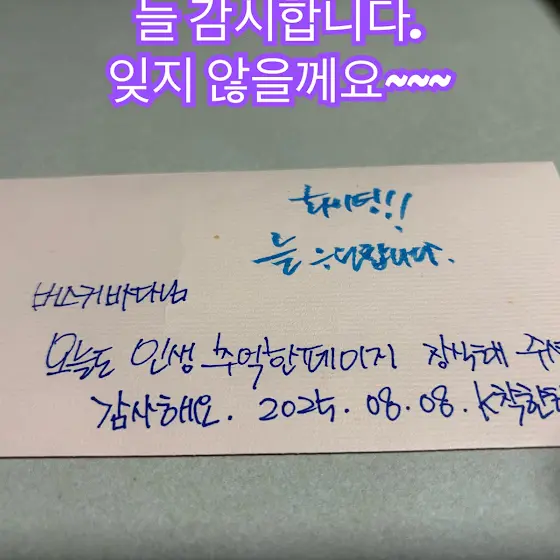 늘 감사합니다.
잊지 않을께요~~~
화이팅!!
늘 응원합니다.
버스커바다님
오늘도 인생 추억한페이지 장식해
감사해요. 2025. 08. 08. K착한